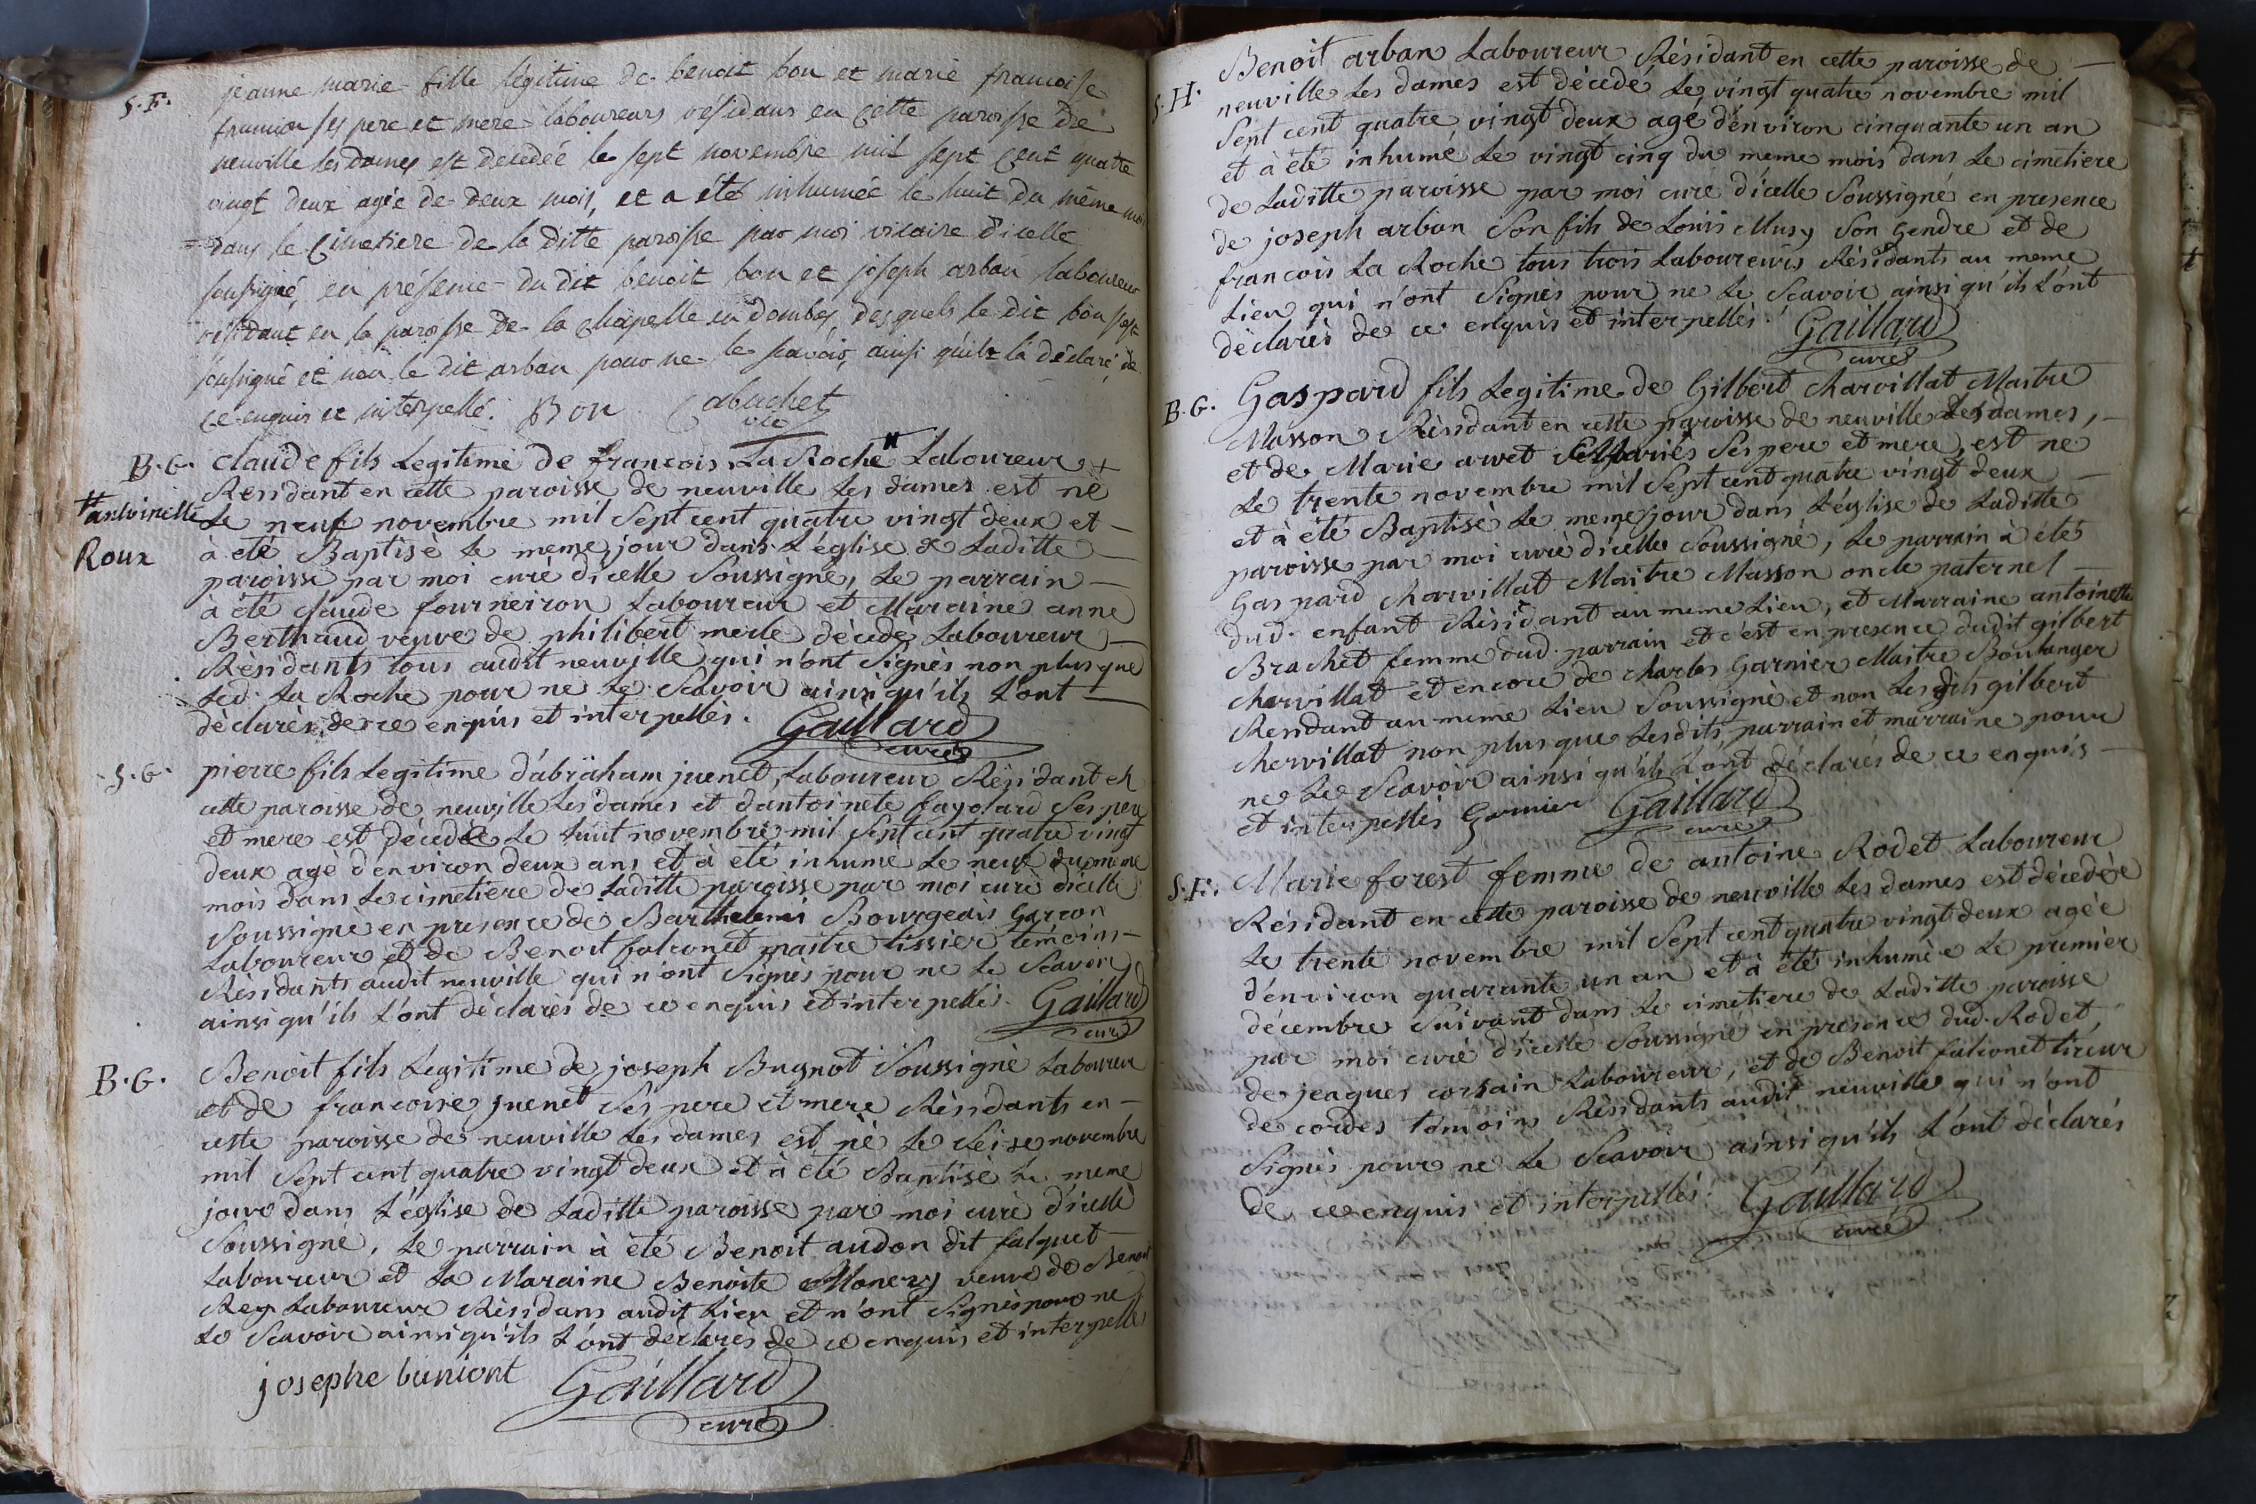 S.F.
jeanne marie fille légitime de benoit bon et marie francoise
francon ses pere et mere laboureurs résidans en cette paroisse de
neuville les dames est decedée le sept novembre mil sept cent quatre
vingt deux agée de deux mois, et a été inhumée le huit du même mois
dans le Cimetiere de la ditte paroisse par moi vicaire d'icelle
soussigné, en présence du dit benoit bon et joseph arban laboureur
résidant en la paroisse de la chapelle en dombes, desquels le dit bon s'est
soussigné et non le dit arban pour ne le savoir, ainsi qu'il l'a déclaré, de
ce enquis et interpellé. Bon Cabuchet
vic
B.G.
claude fils Legitime de francois La Roche # Laboureur +
Résidant en cette paroisse de neuville les dames est né
# antoinette
Le neuf novembre mil Sept cent quatre vingt deux et —
Roux
à été Baptisé le meme jour dans L'église de Laditte —
paroisse par moi curé d'icelle Soussigné, Le parrain —
à été claude fourneiron Laboureur et Maraine anne
Berthaud veuve de philibert merle décédé Laboureur —
Résidants tous audit neuville qui n'ont Signés non plus que
led. La Roche pour ne Le Scavoir ainsi qu'ils L'ont —
déclarés de ce enquis et interpellés. Gaillard
curé
S.G.
pierre fils Legitime d'abräham juenet, Laboureur Résidant en
cette paroisse de neuville Les dames et d'antoinete fayolard Ses pere
et mere est décédé Le huit novembre mil Sept cent quatre vingt
deux agé d'environ deux ans et à été inhumé Le neuf du meme
mois dans Le cimetiere de Laditte paroisse par moi curé d'icelle
Soussigné en presence de Barthelemi Bourgeois Garcon
Laboureur et de Benoit falconet maitre tissier temoins —
Résidants audit neuville qui n'ont Signés pour ne Le Scavoir
ainsi qu'ils L'ont déclarés de ce enquis et interpellés. Gaillard
curé
B.G.
Benoit fils Legitime de joseph Bugnot Soussigné Laboureur
et de francoise juenet Ses pere et mere Résidants en —
cette paroisse de neuville Les dames est né Le Seise novembre
mil Sept cent quatre vingt deux et à été Baptisé Le meme
jour dans L'église de Laditte paroisse par moi curé d'icelle
Soussigné, Le parrain à été Benoit audon dit falquet
Laboureur et La Maraine Benoite Monery veuve de Benoit
Rey Laboureur Résidans audit Lieu et n'ont Signés pour ne
Le Scavoir ainsi qu'ils L'ont declarés de ce enquis et interpellés
josephe buniont Gaillard
curé
S.H.
Benoit arban Laboureur Résidant en cette paroisse de —
neuville Les dames est décedé Le vingt quatre novembre mil
Sept cent quatre vingt deux agé d'environ cinquante un an
et à été inhumé Le vingt cinq du meme mois dans Le cimetiere
de Laditte paroisse par moi curé d'icelle Soussigné en presence
de joseph arban Son fils de Louis Musy Son Gendre et de
francois La Roche tous trois Laboureurs Résidants au meme
Lieu qui n'ont Signés pour ne Le Scavoir ainsi qu'ils L'ont
déclarés de ce enquis et interpellés. Gaillard
curé
B.G.
Gaspard fils Legitime de Gilbert Charvillat Maitre
Masson Résidant en cette paroisse de neuville Les dames, —
et de Marie arvet Mariés Ses pere et mere, est né
Le trente novembre mil Sept cent quatre vingt deux —
et à été Baptisé Le meme jour dans L'église de Laditte
paroisse par moi curé d'icelle Soussigné, Le parrain à été
Gaspard Charvillat Maitre Masson oncle paternel —
dud. enfant Résidant au meme Lieu, et Marraine antoinette
Brachet femme dud. parrain et c'est en presence dudit gilbert
charvillat et encore de charles Garnier Maitre Boulanger
Residant au meme Lieu Soussigné et non Lesdits gilbert
chervillat non plus que Lesdits parrain et marraine pour
ne Le Scavoir ainsi qu'ils L'ont déclarés de ce enquis —
et interpellés Garnier Gaillard
curé
S.F.
Marie forest femme de antoine Rodet Laboureur
Résidant en cette paroisse de neuville Les dames est décedée
Le trente novembre mil Sept cent quatre vingt deux agée
d'environ quarante un an et à été inhumée Le premier
décembre Suivant dans Le cimetiere de Laditte paroisse
par moi curé d'icelle Soussigné en presence dud. Rodet,
de jeaques corsain Laboureur, et de Benoit falconet tireur
de cordes témoins Résidants audit neuville qui n'ont
Signés pour ne Le Scavoir ainsi qu'ils L'ont déclarés
de ce enquis et interpellés. Gaillard
curé